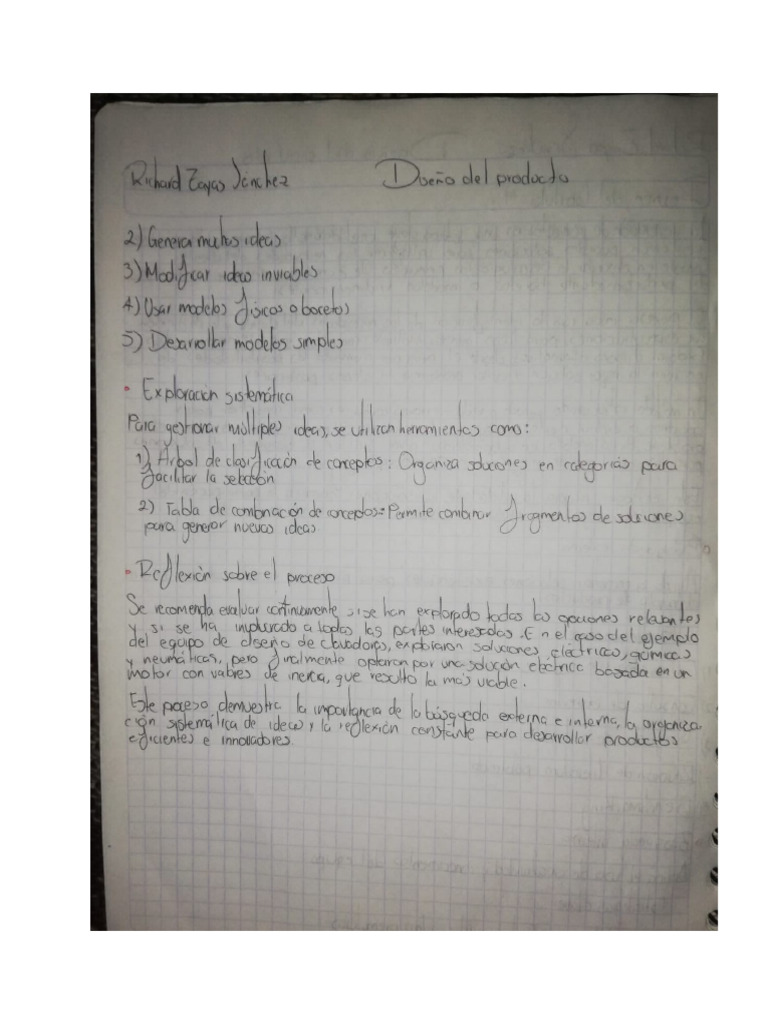 Richard Zayas Sánchez Diseño del producto
2) Generar muchas ideas
3) Modificar ideas inviables
4) Usar modelos físicos o bocetos
5) Desarrollar modelos simples
• Exploración sistemática
Para gestionar múltiples ideas, se utilizan herramientas como:
1) Árbol de clasificación de conceptos: Organiza soluciones en categorías para
facilitar la selección
2) Tabla de combinación de conceptos: Permite combinar fragmentos de soluciones
para generar nuevas ideas
• Reflexión sobre el proceso
Se recomienda evaluar continuamente si se han explorado todas las opciones relevantes
y si se ha involucrado a todas las partes interesadas. En el caso del ejemplo
del equipo de diseño de clavadoras, exploraron soluciones eléctricas, químicas
y neumáticas, pero finalmente optaron por una solución eléctrica basada en un
motor con de inercia, que resulto la más viable.
Este proceso demuestra la importancia de la búsqueda externa e interna, la organiza
ción sistemática de ideas y la reflexión constante para desarrollar productos
eficientes e innovadores.